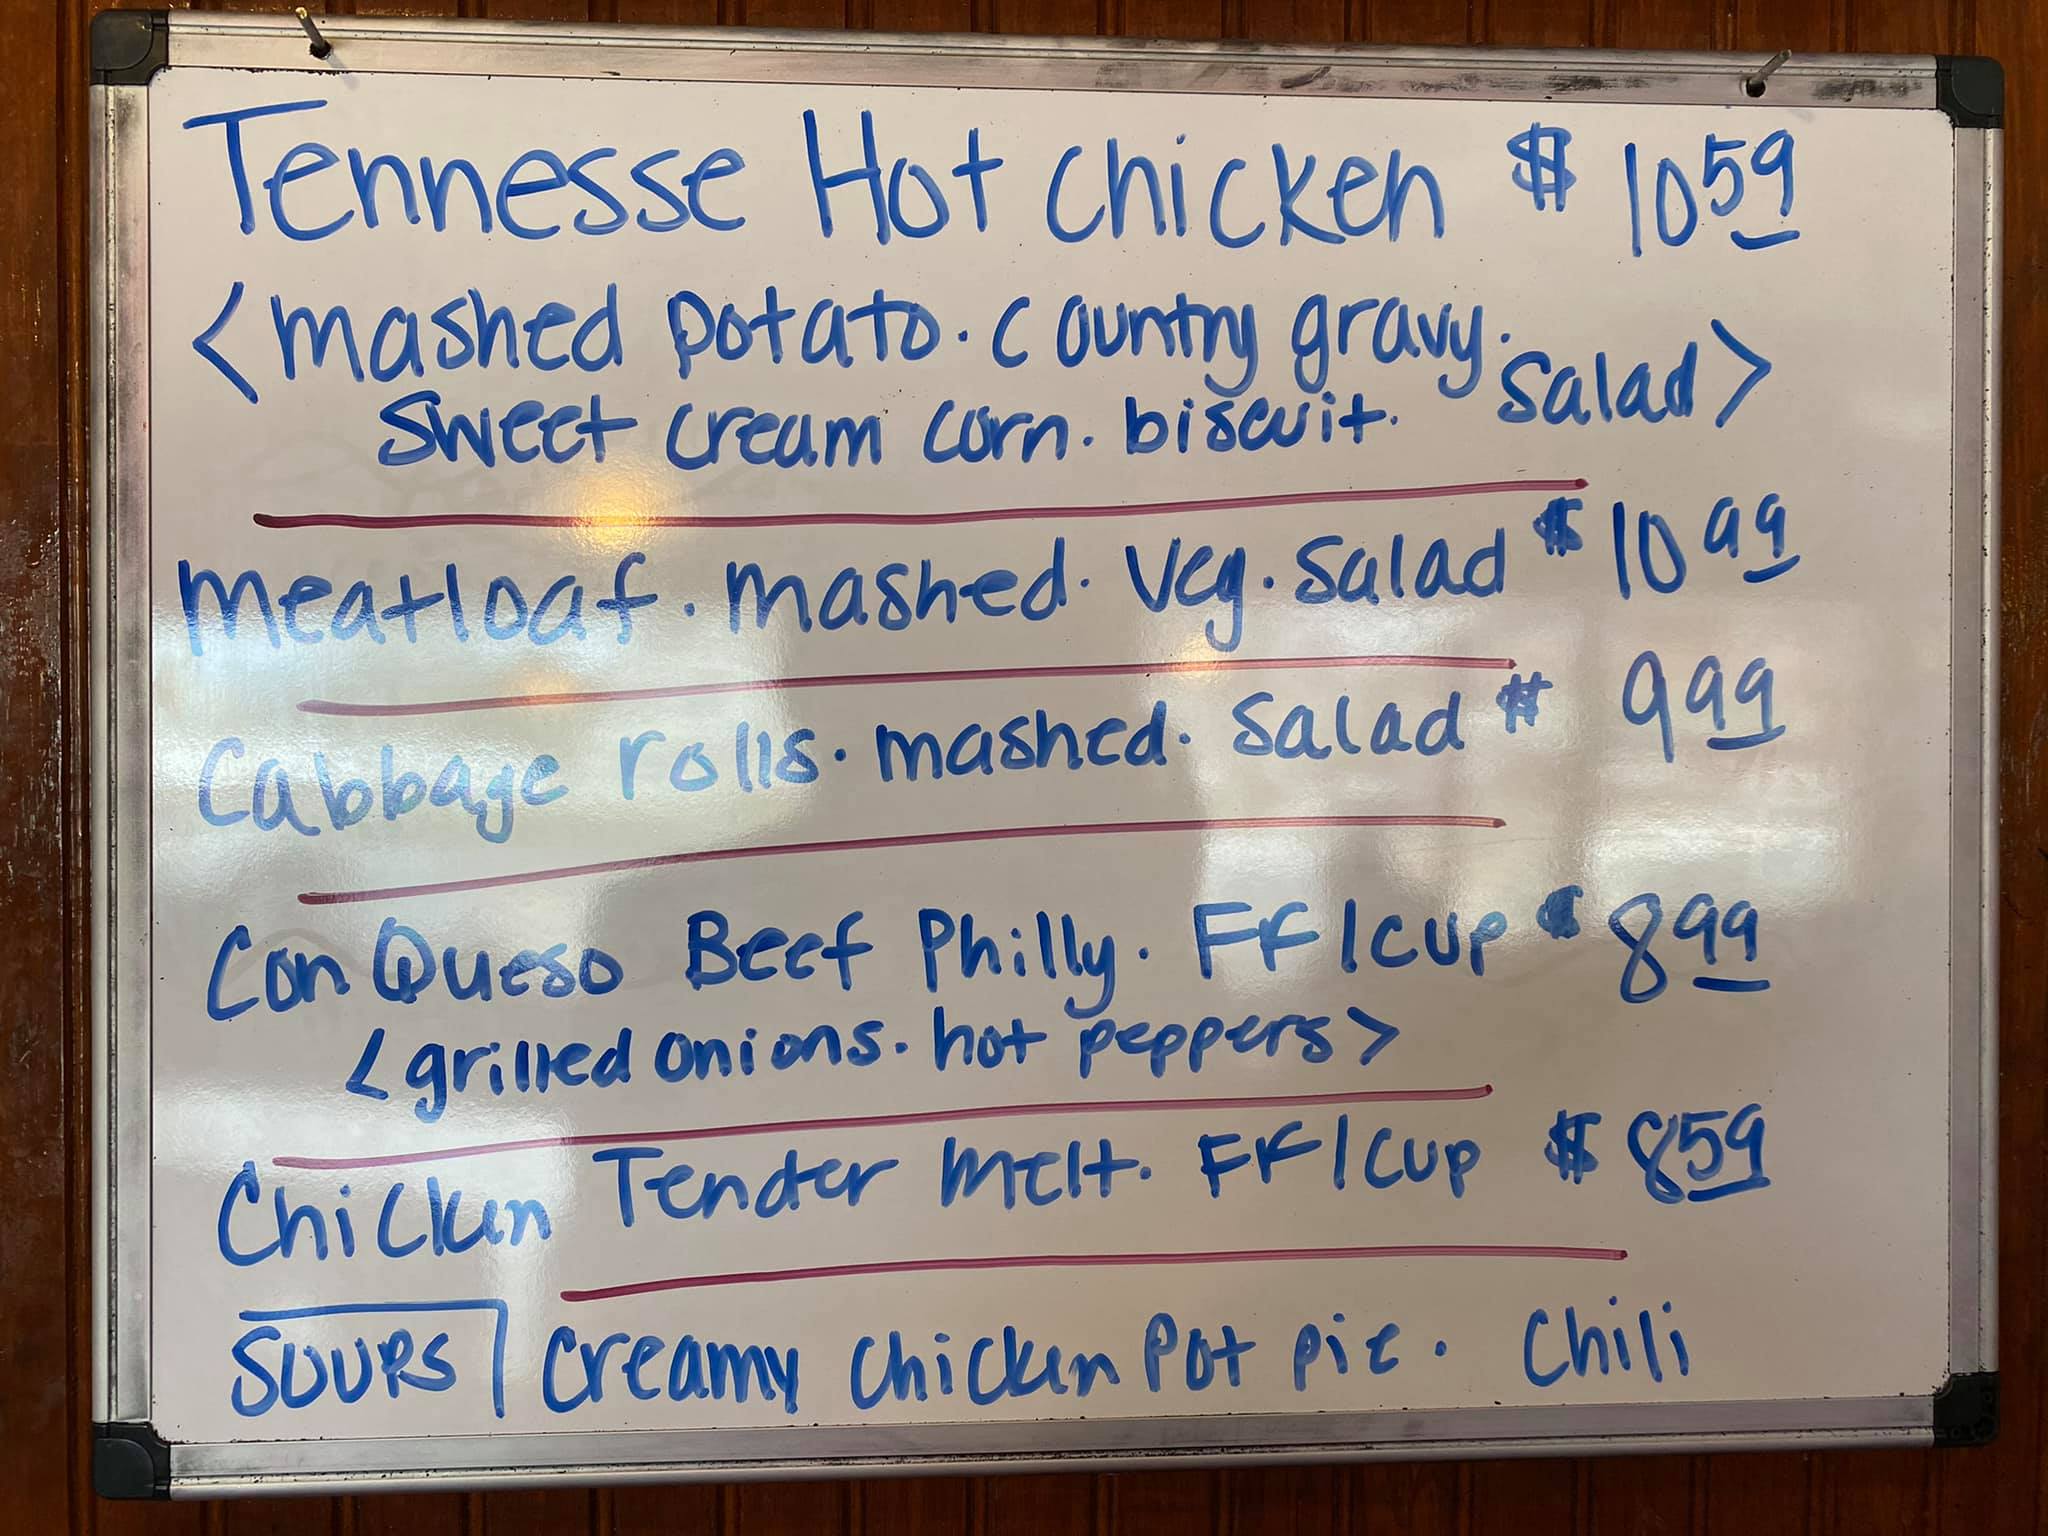 Tennesse Hot chicken $ 10 59
<mashed potato. country gravy.
sweet cream corn. biscuit. Salad>
meatloaf. mashed. veg. salad $ 10 99
Cabbage rolls. mashed. salad $ 9 99
Con Queso Beef Philly. FF/cup $ 8 99
<grilled onions. hot peppers>
Chicken Tender melt. FF/cup $ 8 59
SOUPS creamy chicken pot pie. Chili